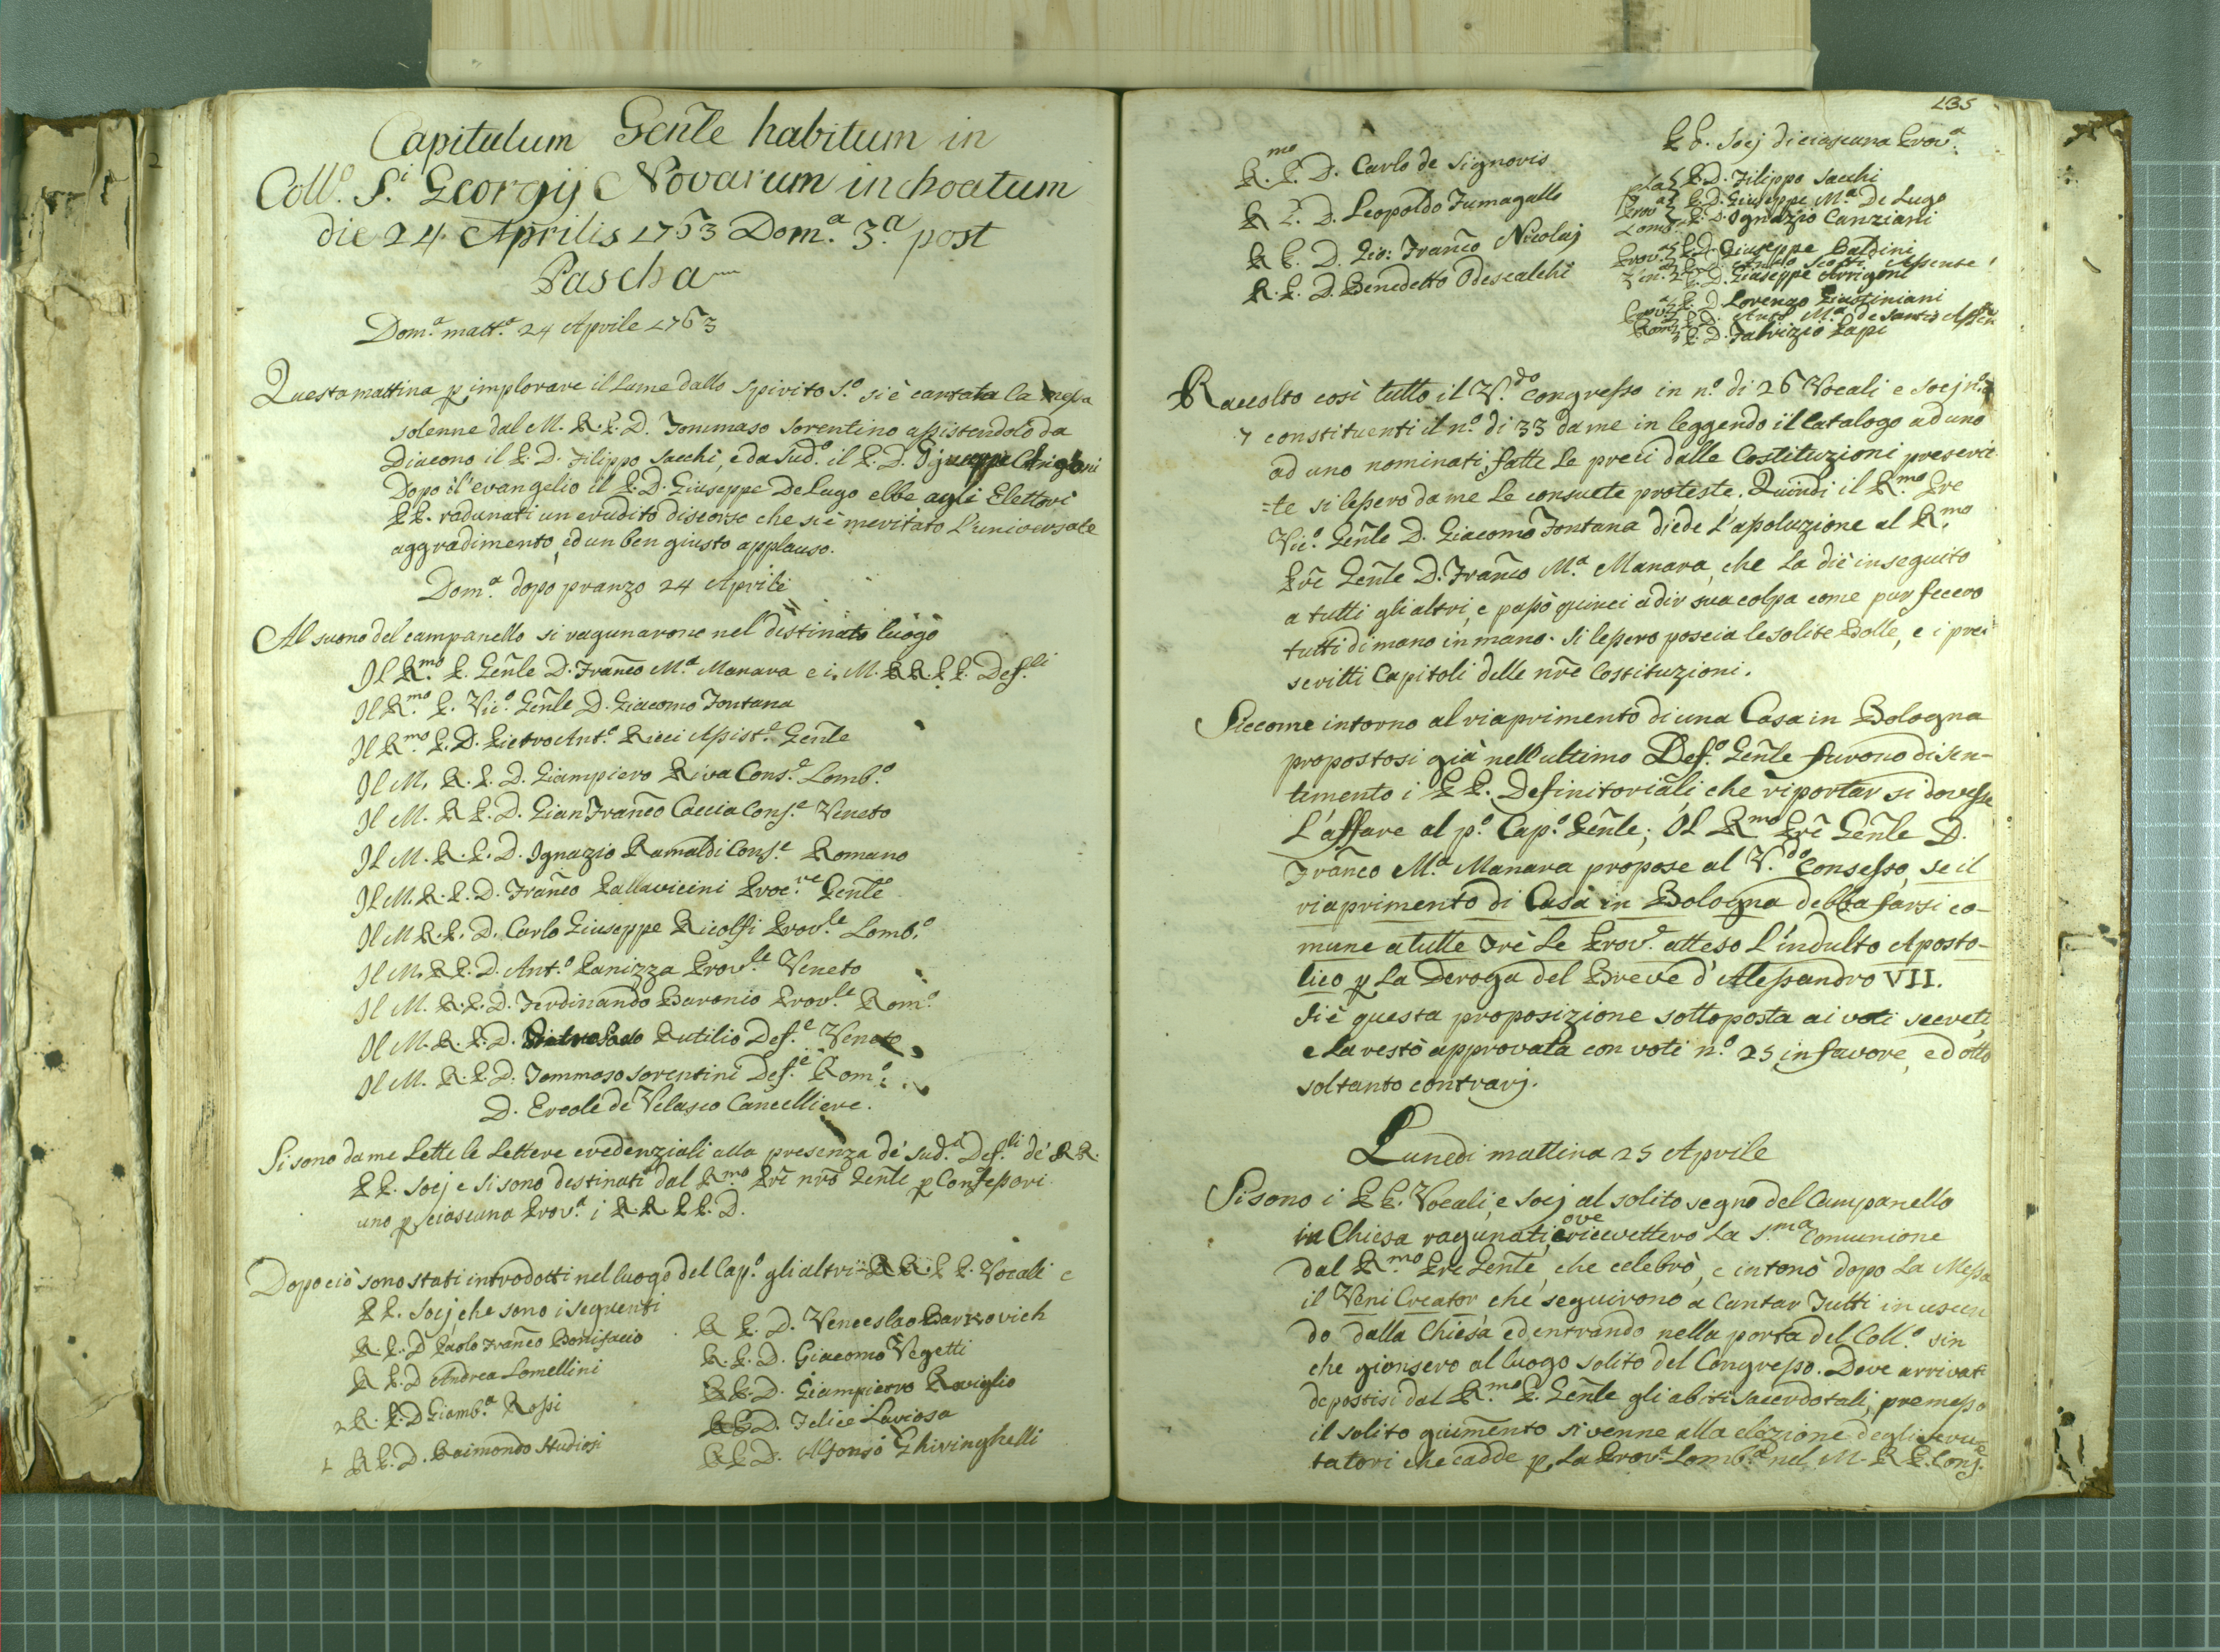 Capitulum Gen̄le habitum in
Coll.º S.i Georgij Novarum inchoatum
die 24 Aprilis 1763 Dom.a 3.a post
Pascha
Dom.a matt.a 24 Aprile 1763
Questa mattina p implorare il Lume dallo Spirito S.º si è cantata la messa
solenne dal M. R. P. D. Tommaso Sorentino assistendolo da
Diacono il P. D. Filippo Sacchi, e da Sud.º il P. D. Giuseppe
Dopo il l'evangelio il P. D. Giuseppe De Lugo ebbe agli Elettori
PP. radunati un erudito discorso che si è meritato L'universale
aggradimento, ed un ben giusto applauso.
Dom.a dopo pranzo 24 Aprile
Al suono del campanello si ragunarono nel destinato luogo
Il R.mo P. Gen̄le D. Fran̄co M.a Manara e i M. RR. PP. Def.li
Il R.mo P. Vic.º Gen̄le D. Giacomo Fontana
Il R.mo P. D. Pietro Ant.º Ricci Assist.e Gen̄le
Il M. R. P. D. Giampiero Riva Cons.e Lomb.º
Il M. R. P. D. Gian Fran̄co Caccia Cons.e Veneto
Il M. R. P. D. Ignazio Ramaldi Cons.e Romano
Il M. R. P. D. Fran̄co Pallavicini Proc.re Gen̄le
Il M. R. P. D. Carlo Giuseppe Ricolfi Prov.le Lomb.º
Il M. R. P. D. Ant.º Panizza Prov.le Veneto
Il M. R. P. D. Ferdinando Baronio Prov.le Rom.º
Il M. R. P. D. Rutilio Def.e Veneto
Il M. R. P. D. Tommaso Sorentini Def.e Rom.º
D. Ercole de Velasco Cancelliere.
Si sono da me Lette le Lettere credenziali alla presenza de' sud.i Def.li de' RR.
PP. Socj e si sono destinati dal R.mo Pr̄e nr̄o Gen̄le p Confessori
uno p ciascuna Prov.a i RR. PP. D.
Dopo ciò sono stati introdotti nel luogo del Cap.º gli altri RR. PP. Vocali e
PP. Socj che sono i seguenti
R. P. D Paolo Fran̄co Bonifacio
R P. D Andrea Lomellini
2 R. P. D Giamb.a Rossi
1 R P. D. Raimondo Studiosi
R P. D. Venceslao Barkovich
R. P. D. Giacomo Vegetti
R P. D. Giampietro Roviglio
R P. D. Felice Laviosa
R P. D. Alfonso Ghiringhelli
135
R.mo P. D. Carlo de Signoris
R P. D. Leopoldo Fumagalli
R P. D. Gio: Fran̄co Nicolaj
R. P. D. Benedetto Odescalchi
PP. Socj di ciascuna Prov.a
P. D. Filippo Sacchi
Prov.a P. D. Giuseppe M.a De Lugo
Lomb. P. D. Ignazio Canziani
Prov.a P. D. Giuseppe Baldini
Ven.a Scotti Assente
P. D. Giuseppe Arrigoni
Prov.a P. D. Lorenzo Giustiniani
Rom. P. D. Ant.º M.a de Santis Assen
P. D. Fabrizio Lapi
Raccolto così tutto il V.do congresso in n.º di 26 Vocali e Socj n.º
7 constituenti il n.º di 33 da me in leggendo il Catalogo ad uno
ad uno nominati, fatte Le preci dalle Costituzioni prescrit
=te si lessero da me Le consuete proteste. Quindi il R.mo Pre
Vic.º Gen̄le D. Giacomo Fontana diede L'assoluzione al R.mo
Pr̄e Gen̄le D. Fran̄co M.a Manara, che La diè in seguito
a tutti gli altri, e passò quinci a dir sua colpa come pur fecero
tutti di mano in mano. Si lessero poscia le solite Bolle, e i pre
scritti Capitoli delle nr̄e Costituzioni.
Siccome intorno al riaprimento di una Casa in Bologna
propostosi già nell'ultimo Def.º Gen̄le furono di sen-
timento i PP. Definitoriali che riportar si dovesse
L'affare al p.º Cap.º Gen̄le; Il R.mo Pr̄e Gen̄le D.
Fran̄co M.a Manara propose al V.do Consesso, se il
riaprimento di Casa in Bologna debba farsi co-
mune a tutte Trè Le Prov.e atteso L'indulto Aposto-
lico p La Deroga del Breve d'Alessandro VII.
Si è questa proposizione sottoposta ai voti secreti,
e La restò approvata con voti n.º 25 in favore, ed otto
soltanto contrarj.
Lunedi mattina 25 Aprile
Si sono i PP. Vocali, e Socj al solito segno del Campanello
in Chiesa ragunati, ove ricevettero La S.ma Comunione
dal R.mo Pr̄e Gen̄le, che celebrò, e intonò dopo La Messa
il Veni Creator che seguirono a cantar Tutti in uscen
do dalla Chiesa ed entrando nella porta del Coll.º sin
che gionsero al luogo solito del Congresso. Dove arrivati
depostisi dal R.mo P. Gen̄le gli abiti sacerdotali, premesso
il solito giuramento si venne alla elezione degli scru
tatori che cadde p La Prov.a Lomb.a nel M. R. P. Cons.